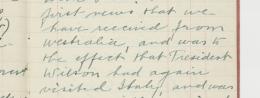 first news that we
have received from
Westralia, and was to
the effect that President
Wilson had again
visited Italy, and was